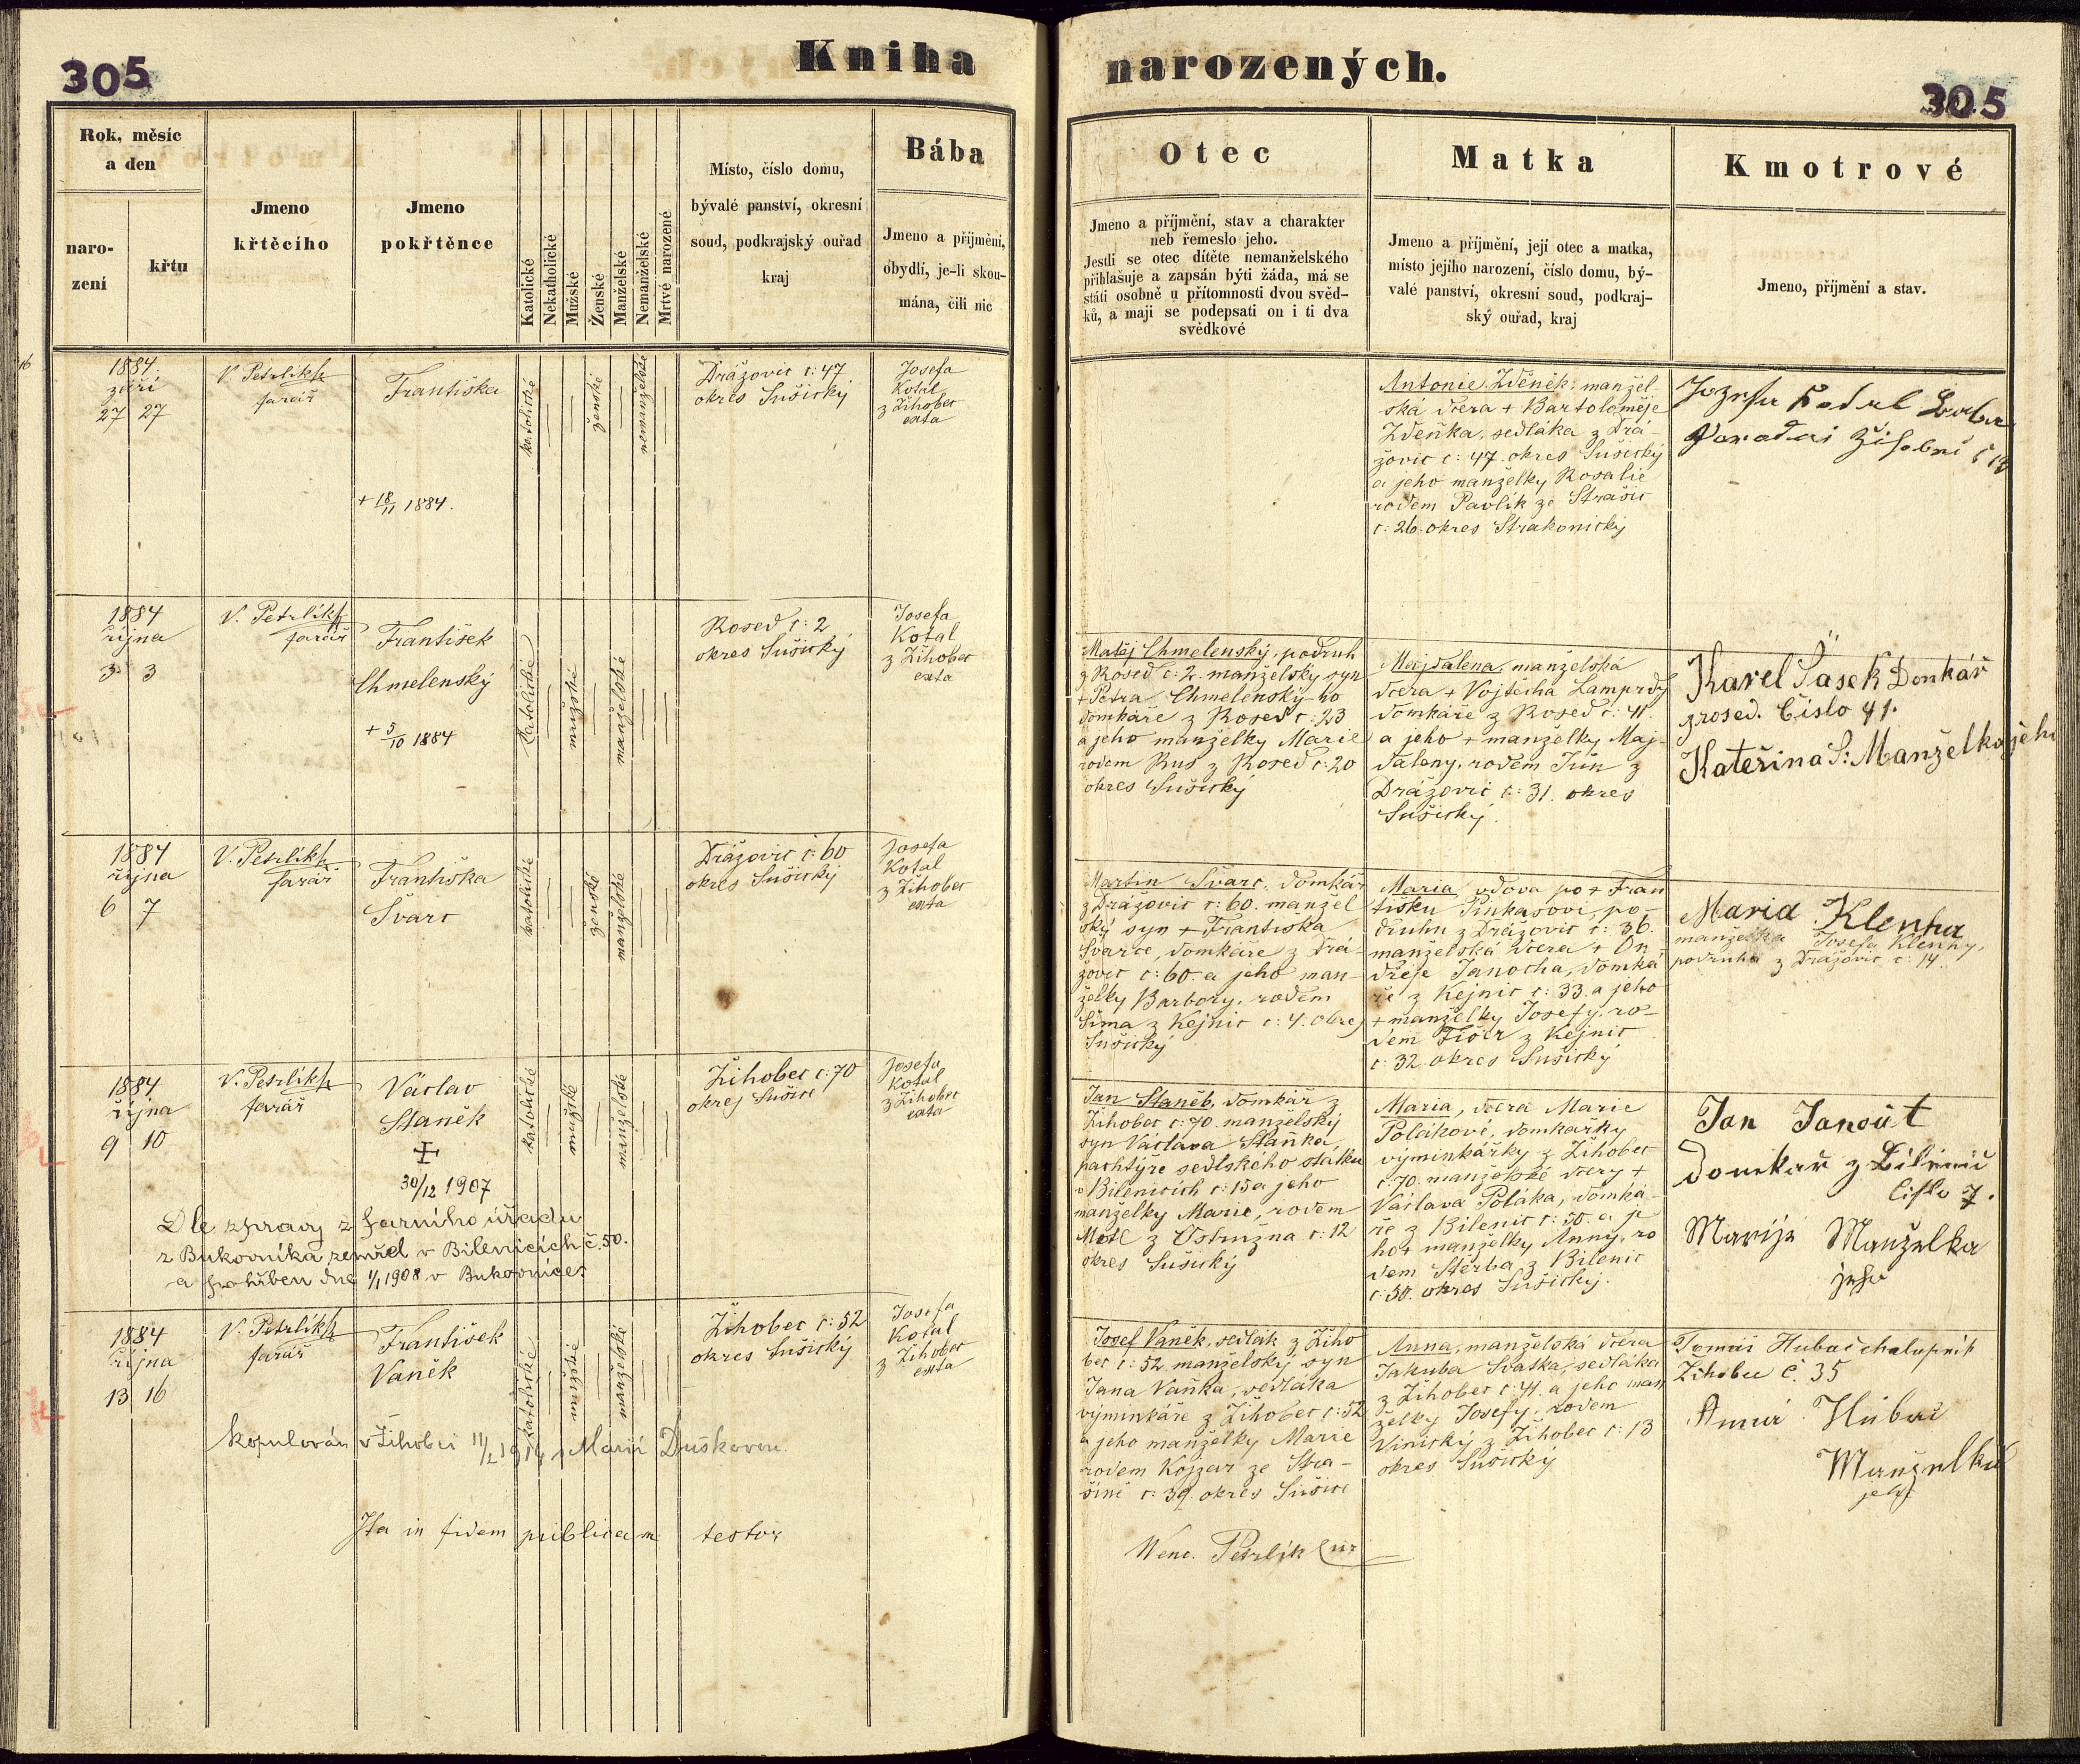 305
Kniha
narozených.
305
Rok, měsíc
a den
naro-
zení
křtu
Jmeno
křtěcího
Jmeno
pokřtěnce
Katolické
Nekatholické
Mužské
Ženské
Manželské
Nemanželské
Mrtvě narozené
Místo, číslo domu,
bývalé panství, okresní
soud, podkrajský ouřad
kraj
Bába
Jmeno a příjmění,
obydlí, je-li skou-
mána, čili nic
Otec
Jmeno a příjmění, stav a charakter
neb řemeslo jeho.
Jestli se otec dítěte nemanželského
přihlašuje a zapsán býti žádá, má se
státi osobně u přítomnosti dvou svěd-
ků, a mají se podepsati on i ti dva
svědkové
Matka
Jmeno a příjmění, její otec a matka,
místo jejího narození, číslo domu, bý-
valé panství, okresní soud, podkraj-
ský ouřad, kraj
Kmotrové
Jmeno, příjmění a stav.
1884.
září
27 27
V. Petrlík
farář
Františka
+ 18/11 1884.
katolické
ženské
nemanželské
Drážovic č: 47
okres Sušický
Josefa
Kotal
z Žihobec
exta
Antonie Zděněk, manžel-
ská dcera + Bartoloměje
Zdeňka, sedláka z Drá-
žovic č: 47. okres Sušický
a jeho manželky Rosalie
rodem Pavlík ze Strašic
č: 26. okres Strakonický
1884
října
3 3
V. Petrlík
farář
František
Chmelenský
+ 5/10 1884
katolické
mužské
manželské
Rosed č: 2
okres Sušický
Josefa
Kotal
z Žihobec
exta
Matěj Chmelenský, podruh
z Rosed č: 2. manželský syn
+ Petra Chmelenský-ho
domkáře z Rosed č: 23
a jeho manželky Marie
rodem Rus z Rosed č: 20
okres Sušický
Majdalena, manželská
dcera + Vojtěcha Lamprdy
domkáře z Rosed č: 41.
a jeho + manželky Maj-
daleny, rodem
z
Drážovic č: 31. okres
Sušický.
Karel Šašek Domkář
z rosed. Číslo 41.
Kateřina S: Manželka jeho
1884
října
6 7
V. Petrlík
farář
Františka
Švarc
katolické
ženské
manželské
Drážovic č: 60
okres Sušický
Josefa
Kotal
z Žihobec
exta
Martin Švarc, domkář
z Drážovic č: 60. manžel
ský syn + Františka
Švarce, domkáře z Drá-
žovic č: 60. a jeho man-
želky Barbory, rodem
Šíma z Kejnic č: 4. okres
Sušický
Maria vdova po + Fran
tišku Pinkasovi, po-
druhu z Drážovic č: 36.
manželská dcera + On-
dřeje Janocha, domká
ře z Kejnic č: 33. a jeho
+ manželky Josefy, ro-
dem Fišer z Kejnic
č: 32. okres Sušický
Maria Klenha
manželka Josefa Klenhy,
podruha z Drážovic č: 14.
1884
října
9 10
V. Petrlík
farář
Václav
Staněk
30/12 1907
Dle zprávy z farního úřadu
z Bukovníka zemřel v Bilenicích č. 50.
a pohřben dne 1/1 1908 v Bukovníce.
katolické
mužské
manželské
Žihobec č: 70
okres Sušice
Josefa
Kotal
z Žihobec
exta
Jan Staněk, domkář z
Žihobec č: 70. manželský
syn Václava Staňka,
pachtýře sedlského statku
v Bilenicích č: 15 a jeho
manželky Marie, rodem
Motl z Ostružna č: 12
okres Sušický
Maria, dcera Marie
Polákové, domkářky
výminkářky z Žihobec
č: 70. manželské dcery +
Václava Poláka, domká-
ře z Bilenic č: 50. a je
ho + manželky Anny, ro
dem Štěrba z Bilenic
č: 30. okres Sušický.
Jan Janout
domkář z Bilenic
číslo 7.
Marije Manželka
jeho
1884
října
13 16
V. Petrlík
farář
František
Vaněk
kopulován v Žihobci 11/2 1914 s Marií Duškovou.
katolické
mužské
manželské
Žihobec č: 52
okres Sušický
Josefa
Kotal
z Žihobec
exta
Josef Vaněk, sedlák z Žiho
bec č: 52. manželský syn
Jana Vaňka, sedláka
výminkáře z Žihobec č: 52
a jeho manželky Marie
rodem Kojzar ze Stra-
šině č: 39. okres Sušice
Anna, manželská dcera
Jakuba Svatka, sedláka
z Žihobec č: 41. a jeho man
želky Josefy, rodem
Vinický z Žihobec č: 13
okres Sušický
Tomáš Hubač chalupník
Zihobce č. 35
Anna Hubač
Manželka
jeho
Ita in fidem publicam testor
Wenc. Petrlík